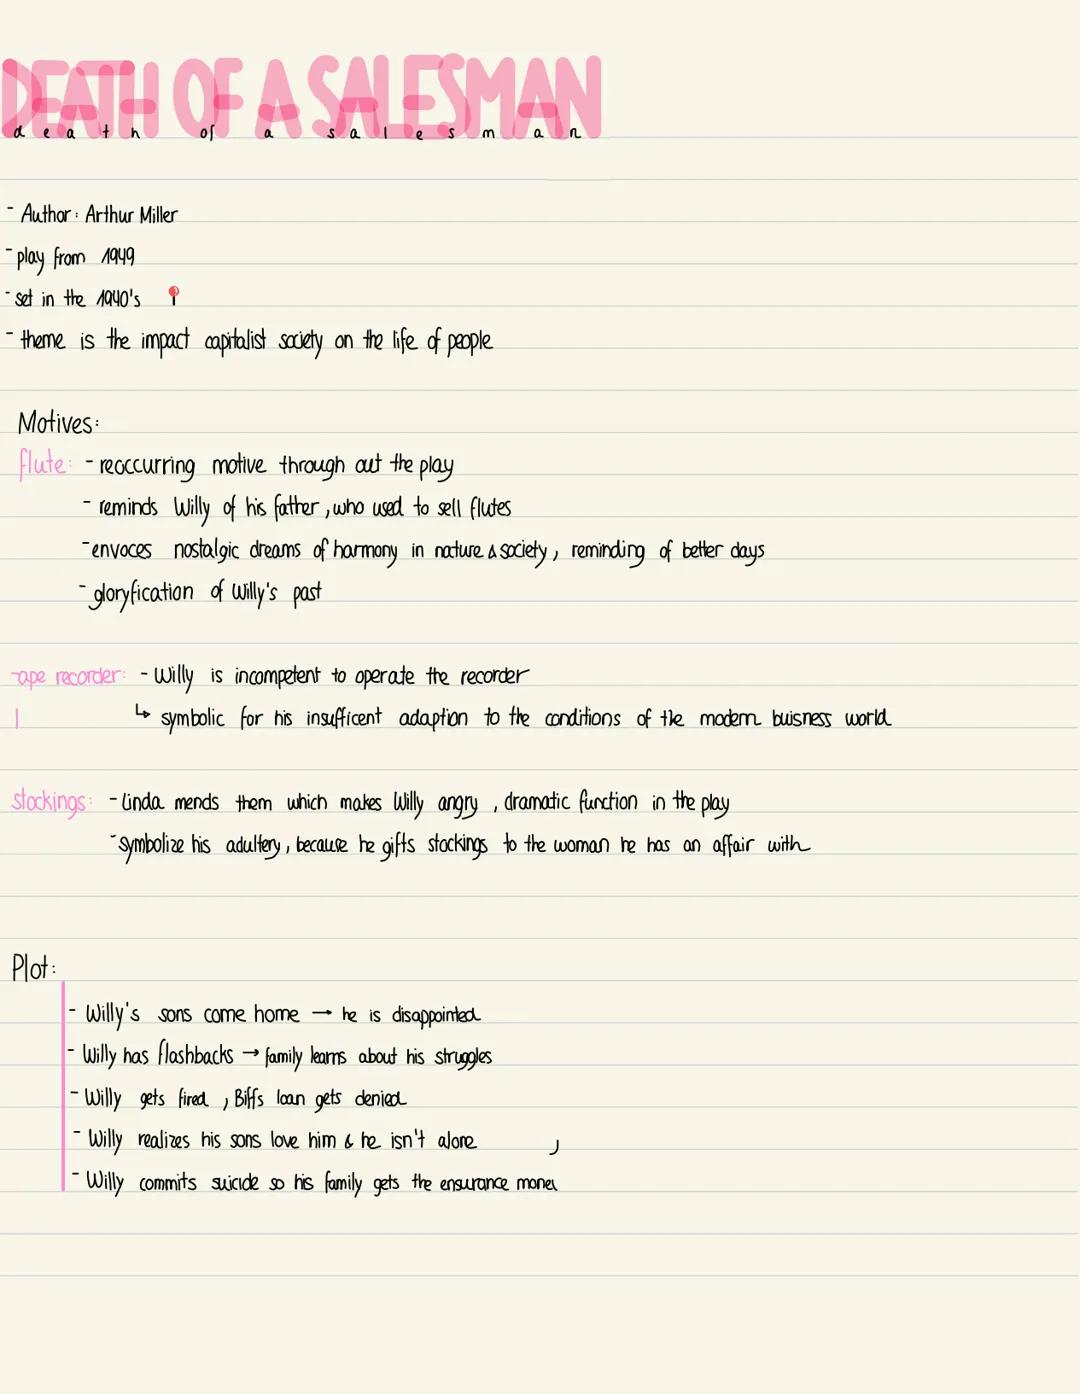 DEATH OF A SALESMAN
death of a salesman
- Author: Arthur Miller
- play from 1949
- set in the 1940's
- theme is the impact capitalist society on the life of people
Motives:
flute: - reoccurring motive through out the play
- reminds Willy of his father, who used to sell flutes
- envoces nostalgic dreams of harmony in nature & society, reminding of better days
- gloryfication of Willy's past
ape recorder: - Willy is incompetent to operate the recorder
↳ symbolic for his insufficent adaption to the conditions of the modern buisness world
stockings: - Linda mends them which makes Willy angry, dramatic function in the play
- Symbolize his adultery, because he gifts stockings to the woman he has an affair with
Plot:
- Willy's sons come home → he is disappointed
- Willy has flashbacks → family learns about his struggles
- Willy gets fired, Biffs loan gets denied
- Willy realizes his sons love him & he isn't alone
- Willy commits suicide so his family gets the ensurance money